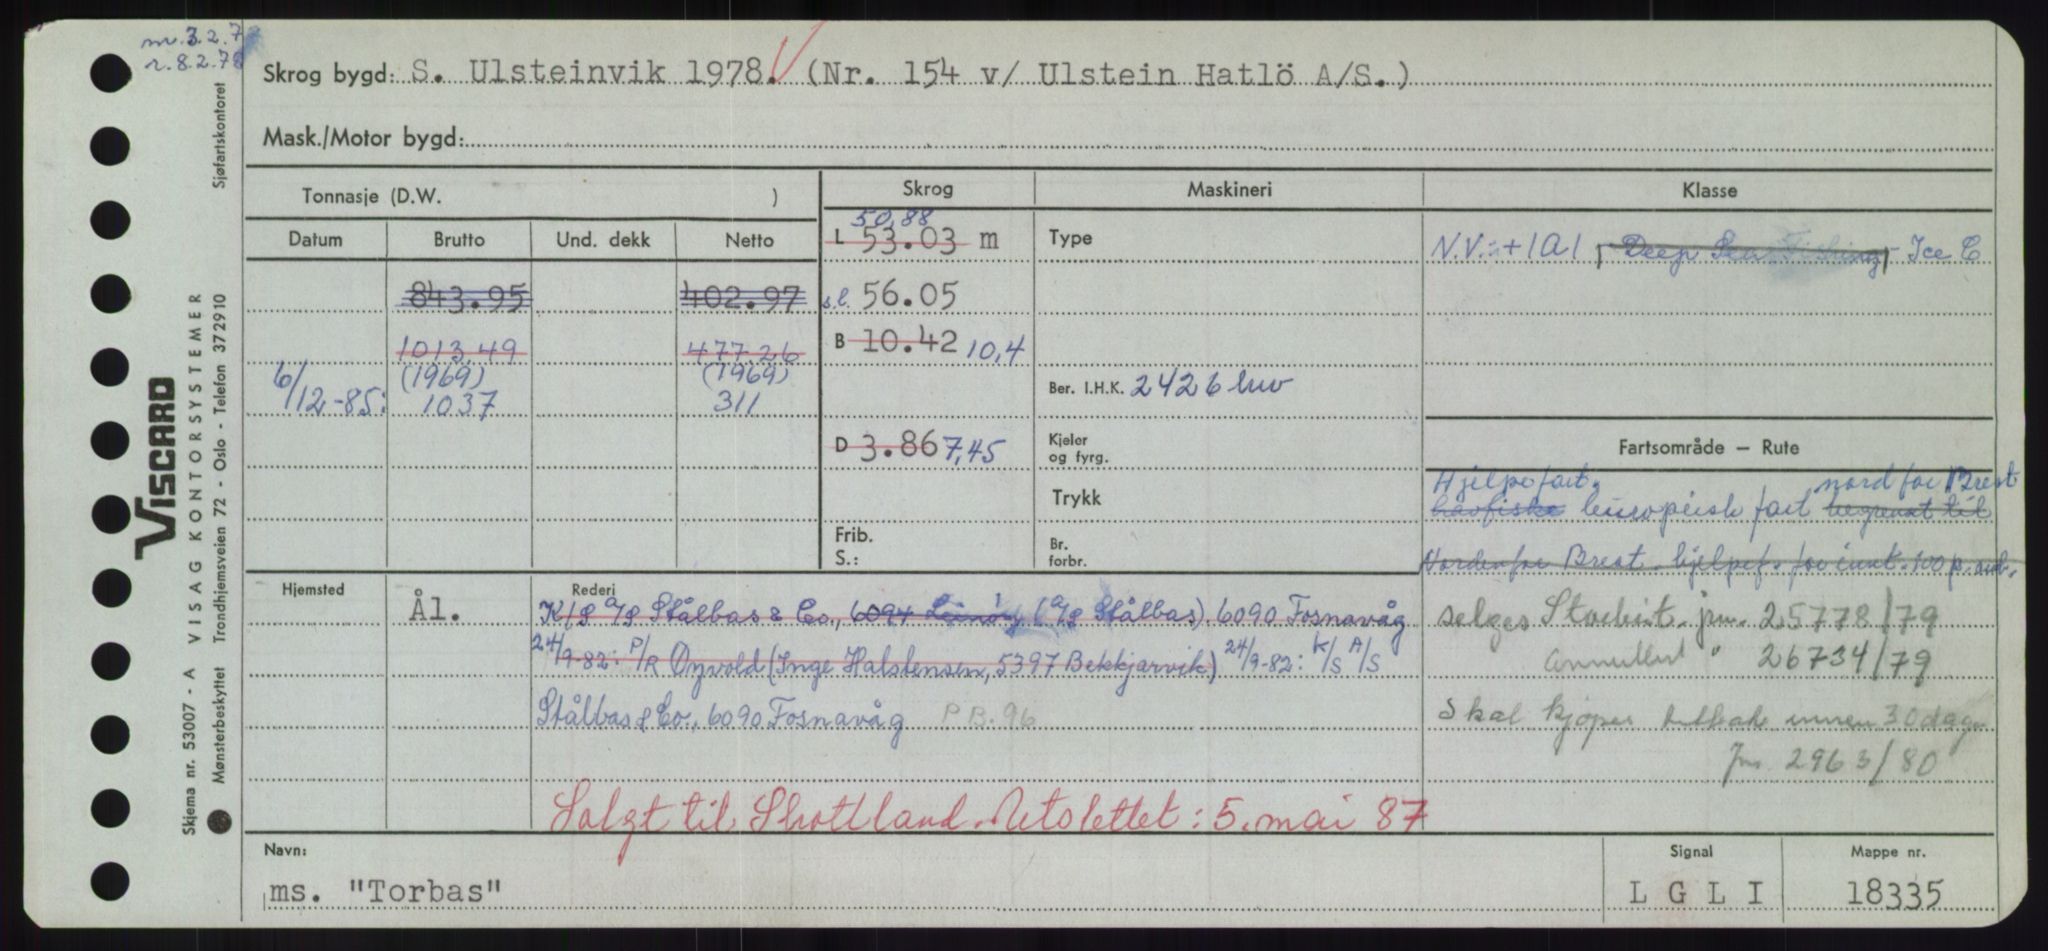 m. 3.2.7
r. 8.2.78
Skrog bygd: S. Ulsteinvik 1978. (Nr. 154 v/ Ulstein Hatlö A/S.)
Mask./Motor bygd:
Tonnasje (D.W. )
Skrog
Maskineri
Klasse
Datum
Brutto
Und. dekk
Netto
50,88
L 53.03 m
Type
N.V. + 1A1, Deep Sea Fishing - Ice C
843.95 402.97
s.l. 56.05
1013.49 477.26
B 10.42 10,4
(1969) (1969)
6/12-85: 1037 311
Ber. I.H.K. 2426 hw
D 3.86 7,45
Kjeler
og fyrg.
Fartsområde — Rute
Trykk
Hjelpefart. nord for Brest
havfiske europeisk fart begrenset til
Frib.
S.:
Br.
forbr.
Norden for Brest. hjelpef. for innt. 100 p. omb.
Hjemsted
Ål.
Rederi
K/S A/S Stålbas & Co., 6094 Leinøy (A/S Stålbas). 6090 Fosnavåg
24/9-82: P/R Øyvold (Inge Halstensen, 5397 Bekkjarvik) 24/9-82: K/S A/S
Stålbas & Co., 6090 Fosnavåg P B. 96
selges jnr. 25778/79
Annullert " 26734/79
Skal kjøpes tilbake innen 30 dager
Jnr. 2963/80
Solgt til Skottland. Utslettet: 5. mai 87
Navn:
ms. "Torbas"
Signal
L G L I
Mappe nr.
18335
Viscard
VISAG KONTORSYSTEMER
Skjema nr. 53007 - A
Mønsterbeskyttet Trondhjemsveien 72 - Oslo - Telefon 372910
Sjøfartskontoret